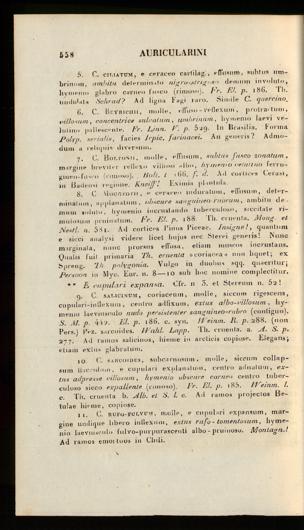 558 AURICULARINI
5. C. CILIATUM, e ceraceo cartilag., effusum, subtus um-
brinum, ambitu determinato nigro-strigoso demum involuto,
hymenio glabro carneo fusco (rimoso). Fr. El. p. 186. Th.
undulata Schrad? Ad ligna Fagi raro. Simile C. quercino.
6. C. molle, effuso-reflexum, protractum,
villosum, concentrice sulcatum, umbrinum, hymenio laevi ve-
lutino pallescente. Fr. Linn. V. p. 529. In Brasilia. Forma
Polyp. serialis, facies Irpic. farinacei. An generis? Admo-
dum a reliquis diversum.
7. C. molle, effusum, subtus fusco zonatum,
margine breviter reflexo villoso albo, hymenio ferru-
gineo-fusco (rimoso). Bolt. t. 166. f. d. Ad cortices Cerasi,
in Badensi regione. Kneiff! Eximia plantula.
8. C. e ceraceo induratum, effusum, deter-
minatum, applanatum, obscure sanguineo-rubrum, ambitu de-
mum soluto, hymenio incrustando tuberculoso, siccitate ri-
mulosum pruinatum. Fr. El. p. 188. Th. cruenta. Moug. et
Nestl. n. 581. Ad cortices Pinus Piceae. Insigne!, quantum
e sicci analysi videre licet hujus nec Sterei generis! Nunc
marginata, nunc prorsus effusa, etiam muscos incrustans.
Qualis fuit primaria Th. cruenta acoriacea non liquet; ex
Spreng. Th. polygonia. Vulgo in duabus sqq. quaeritur;
Persoon in Myc. Eur. n. 8—10 sub hoc nomine complectitur.
** E cupulari expansa. Cfr. n 3. et Stereum n. 52!
9. C. SALICINUM, coriaceum, molle, siccum rigescens,
cupulari-inflexum, centro affixum, extus albo-villosum, hy-
menio laeviusculo nudo persistenter sanguineo-rubro (configuo).
S. M. p. 442. El. p. 186. c. syn. Weinm. R. p. 288. (non
Pers.) Pez. sarcoides. Wahl. Lapp. Th. cruenta. n. A. S. p.
277. Ad ramos salicinos, hieme in arcticis copiose. Elegans;
etiam extus glabratum.
10. C. SARCOIDES, subcarnosum, molle, siccum collap-
sum e cupulari explanatum, centro adnatum, ex-
tus adpresse villosum, hymenio obscure carneo centro tuber-
culoso sicco expallente (rimoso). Fr. El. p. 185. Weinm. l.
c. Th. cruenta b. Alb. et S. l. c. Ad ramos projectos Be-
tulae hieme, copiose.
11. C. RUFO-FULVUM, molle, e cupulari expansum, mar-
gine undique libero inflexum, extus rufo-tomentosum, hyme-
nio laeviusculo fulvo-purpurascenti albo-pruinoso. Montagn.!
Ad ramos emortuos in Chili.